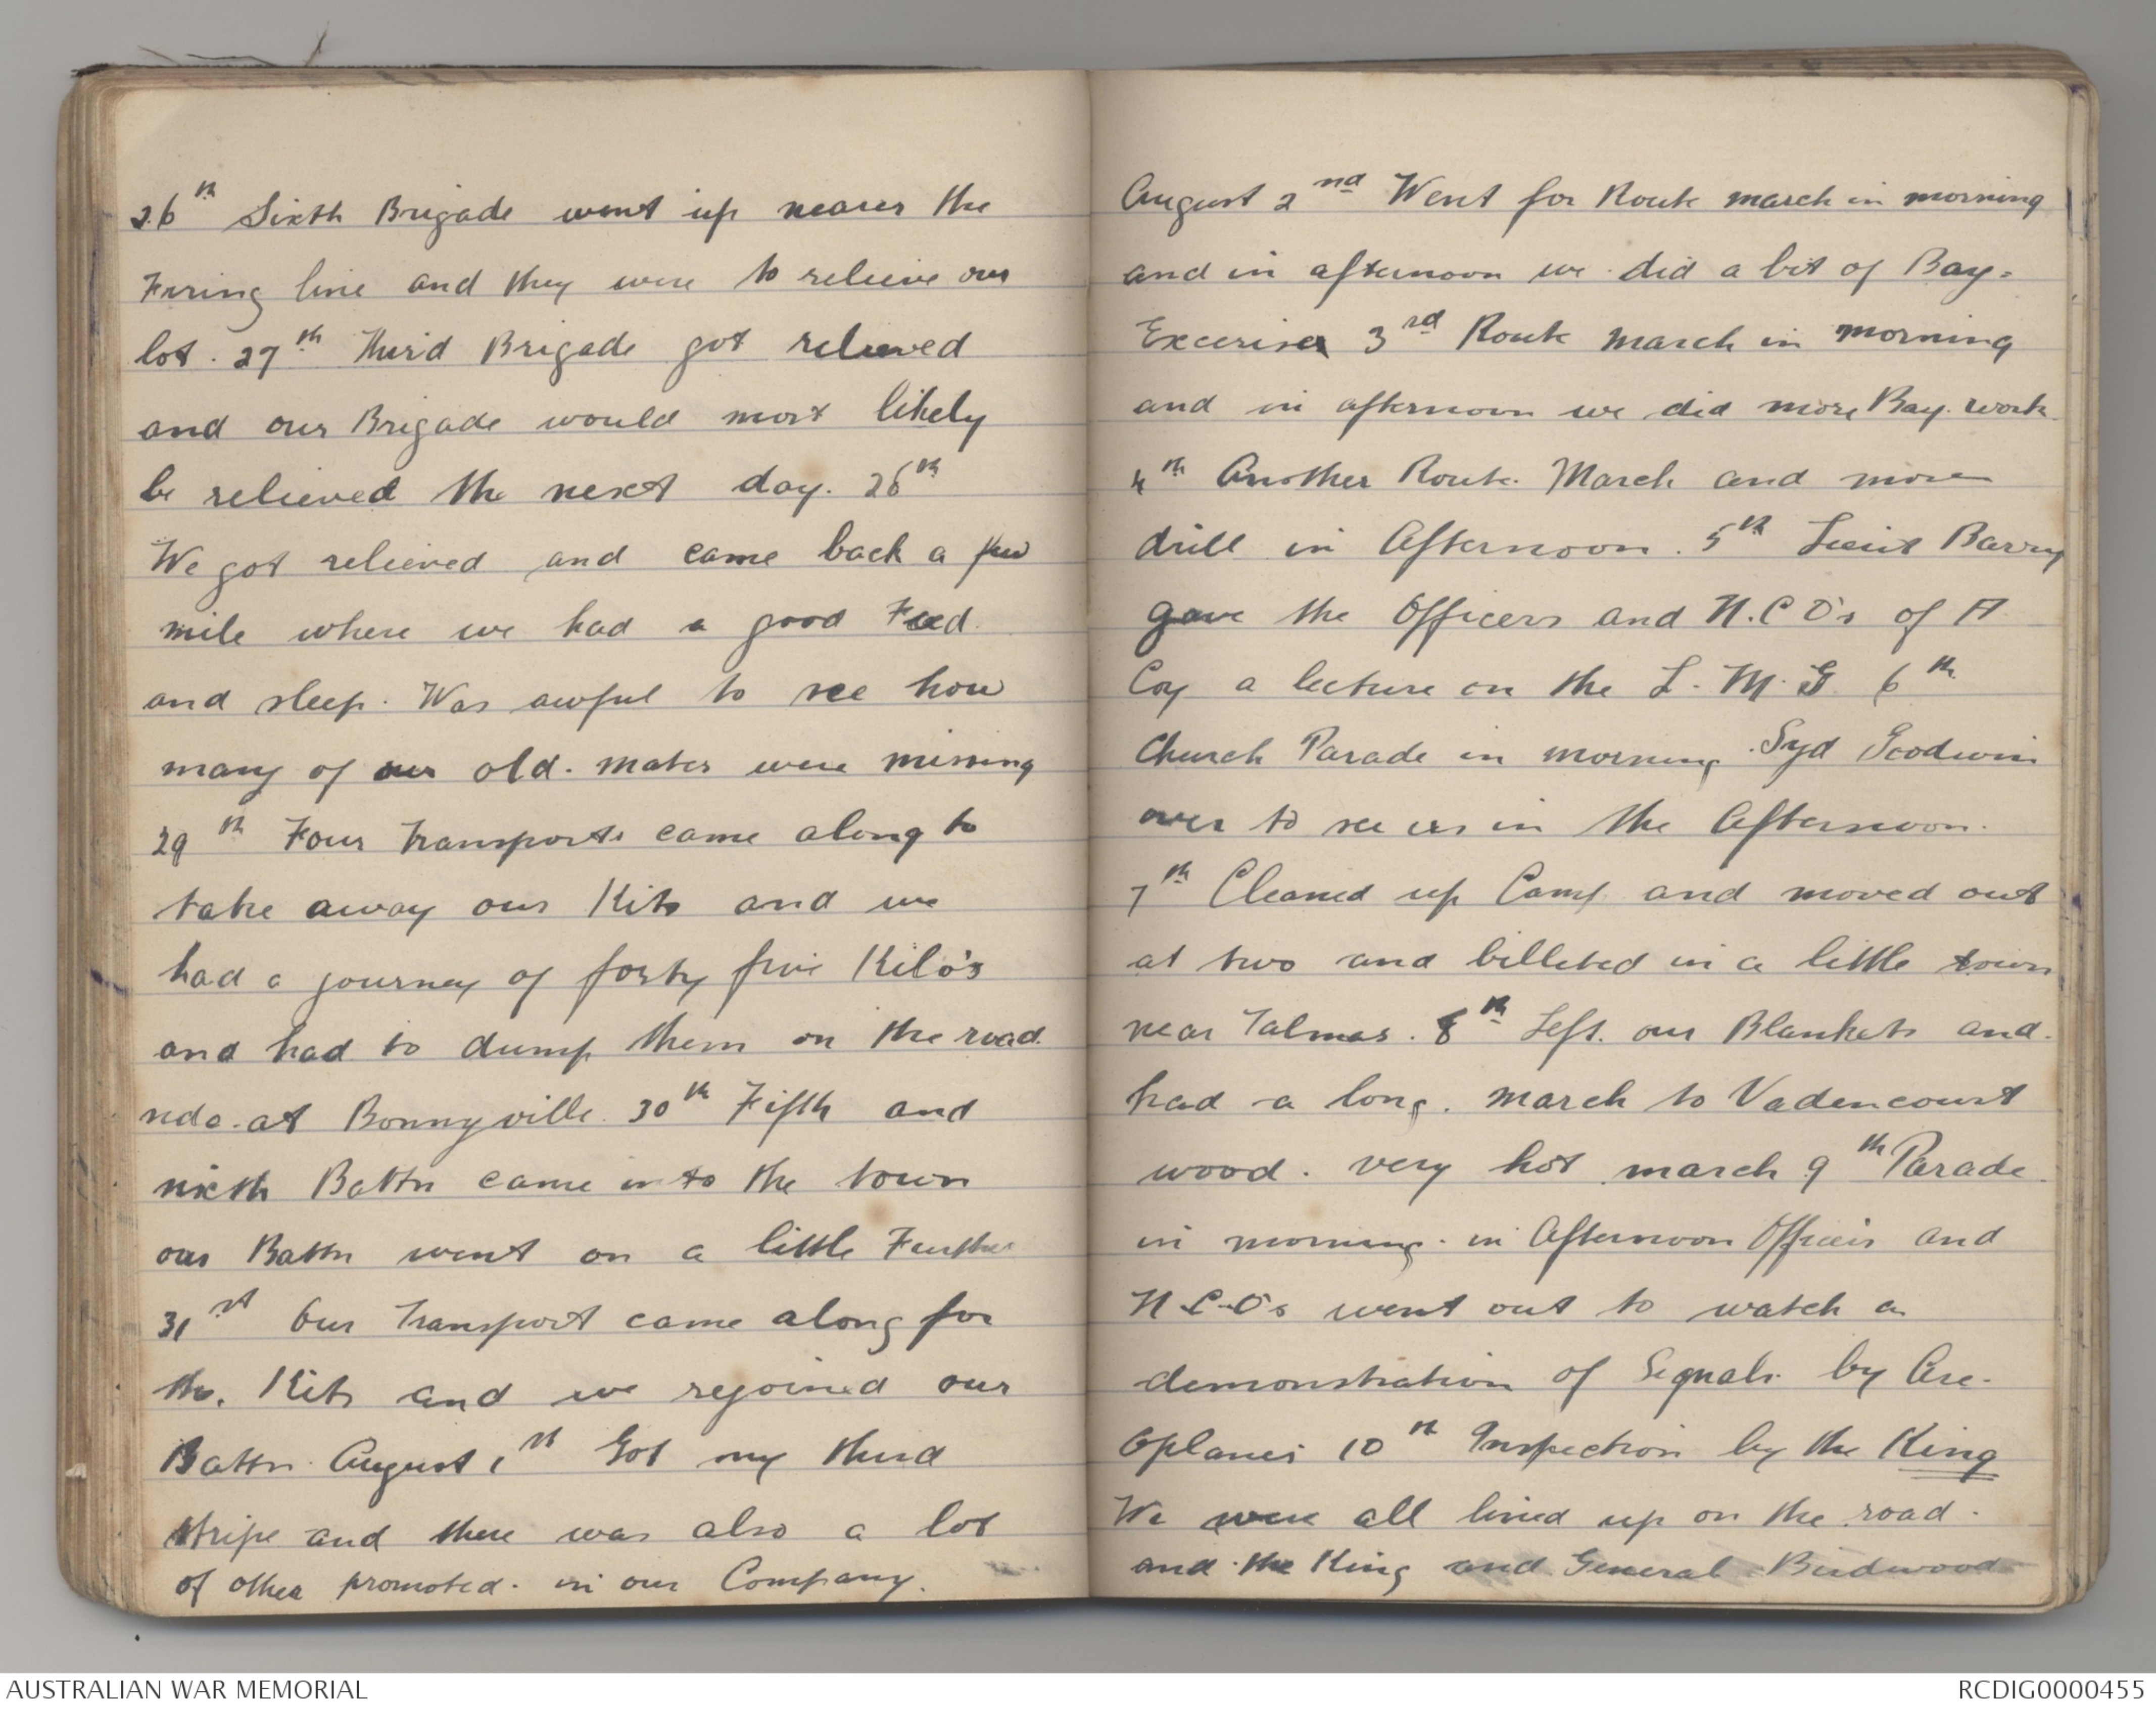 26th Sixth Brigade went up nearer the
Firing line and they were to relieve our
lot. 27th Third Brigade got relieved
and our Brigade would most likely
be relieved the next day. 28th
We got relieved and came back a few
mile where we had a good Feed
and sleep. Was awful to see how
many of our old. mates were missing
29th Four Transports came along to
take away our Kits and we
had a journey of forty five Kilo's
and had to dump them on the road
side at Bonnyville. 30th Fifth and
sixth Battn came into the town
our Battn went on a little Further
31st Our Transport came along for
the. Kits and we rejoined our
Battn. August 1st Got my third
stripe and there was also a lot
of other promoted. in our Company.
August 2nd Went for Route march in morning
and in afternoon we did a bit of Bay-
Excerise 3rd Route march in morning
and in afternoon we did more Bay. work.
4th Another Route. March and more
drill in Afternoon. 5th Lieut Barry
gave the Officers and N.C.O's of A
Coy a lecture on the L. M. G. 6th
Church Parade in morning. Syd Goodwin
over to see us in the Afternoon.
7th Cleaned up Camp and moved out
at two and billeted in a little town
near Talmas. 8th Left. our Blankets and.
had a long. march to Vadencourt
wood. very hot march 9th Parade.
in morning. in Afternoon Officers and
N.C.O's went out to watch a
demonstration of Signals by Are-
Oplanes 10th Inspection by the King
We were all lined up on the road.
and the King and General Birdwood
AUSTRALIAN WAR MEMORIAL
RCDIG0000455